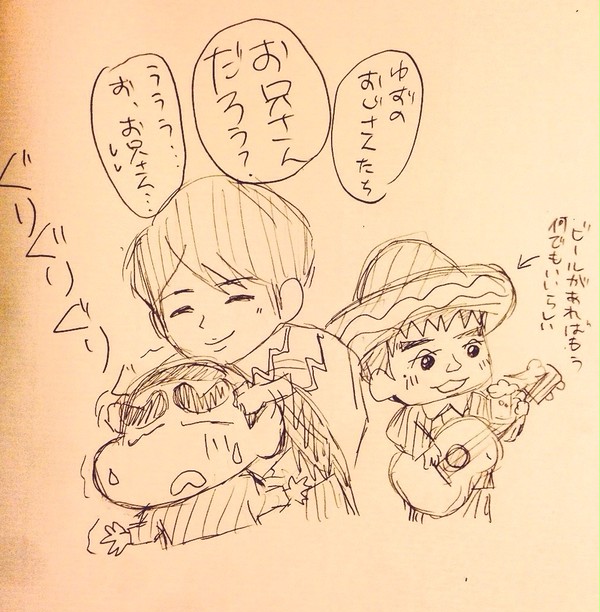 ゆずの
おじさんたち
お兄さん
だろう?
ううう…
お、お兄さん…
いい
ぐりぐりぐりぐり
ビールがあればもう
何でもいいらしい